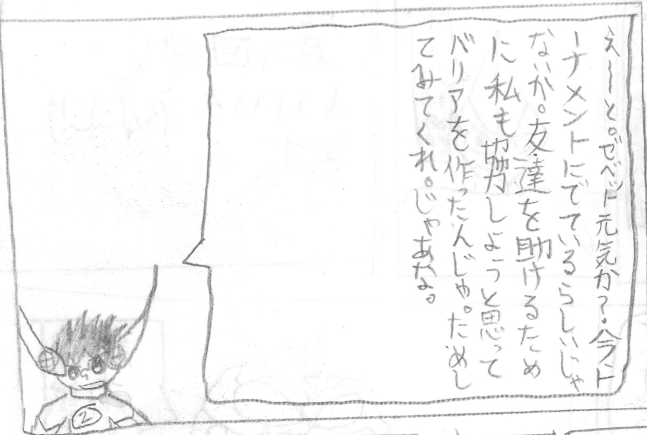 えーと。ゼペット元気か?・ハラント
ーナメントにでているらしいじゃ
ないか。友達を助けるため
に私も協力しようと思って
バリアを作ったんじゃ。ためし
てみてくれ。じゃあな。
2